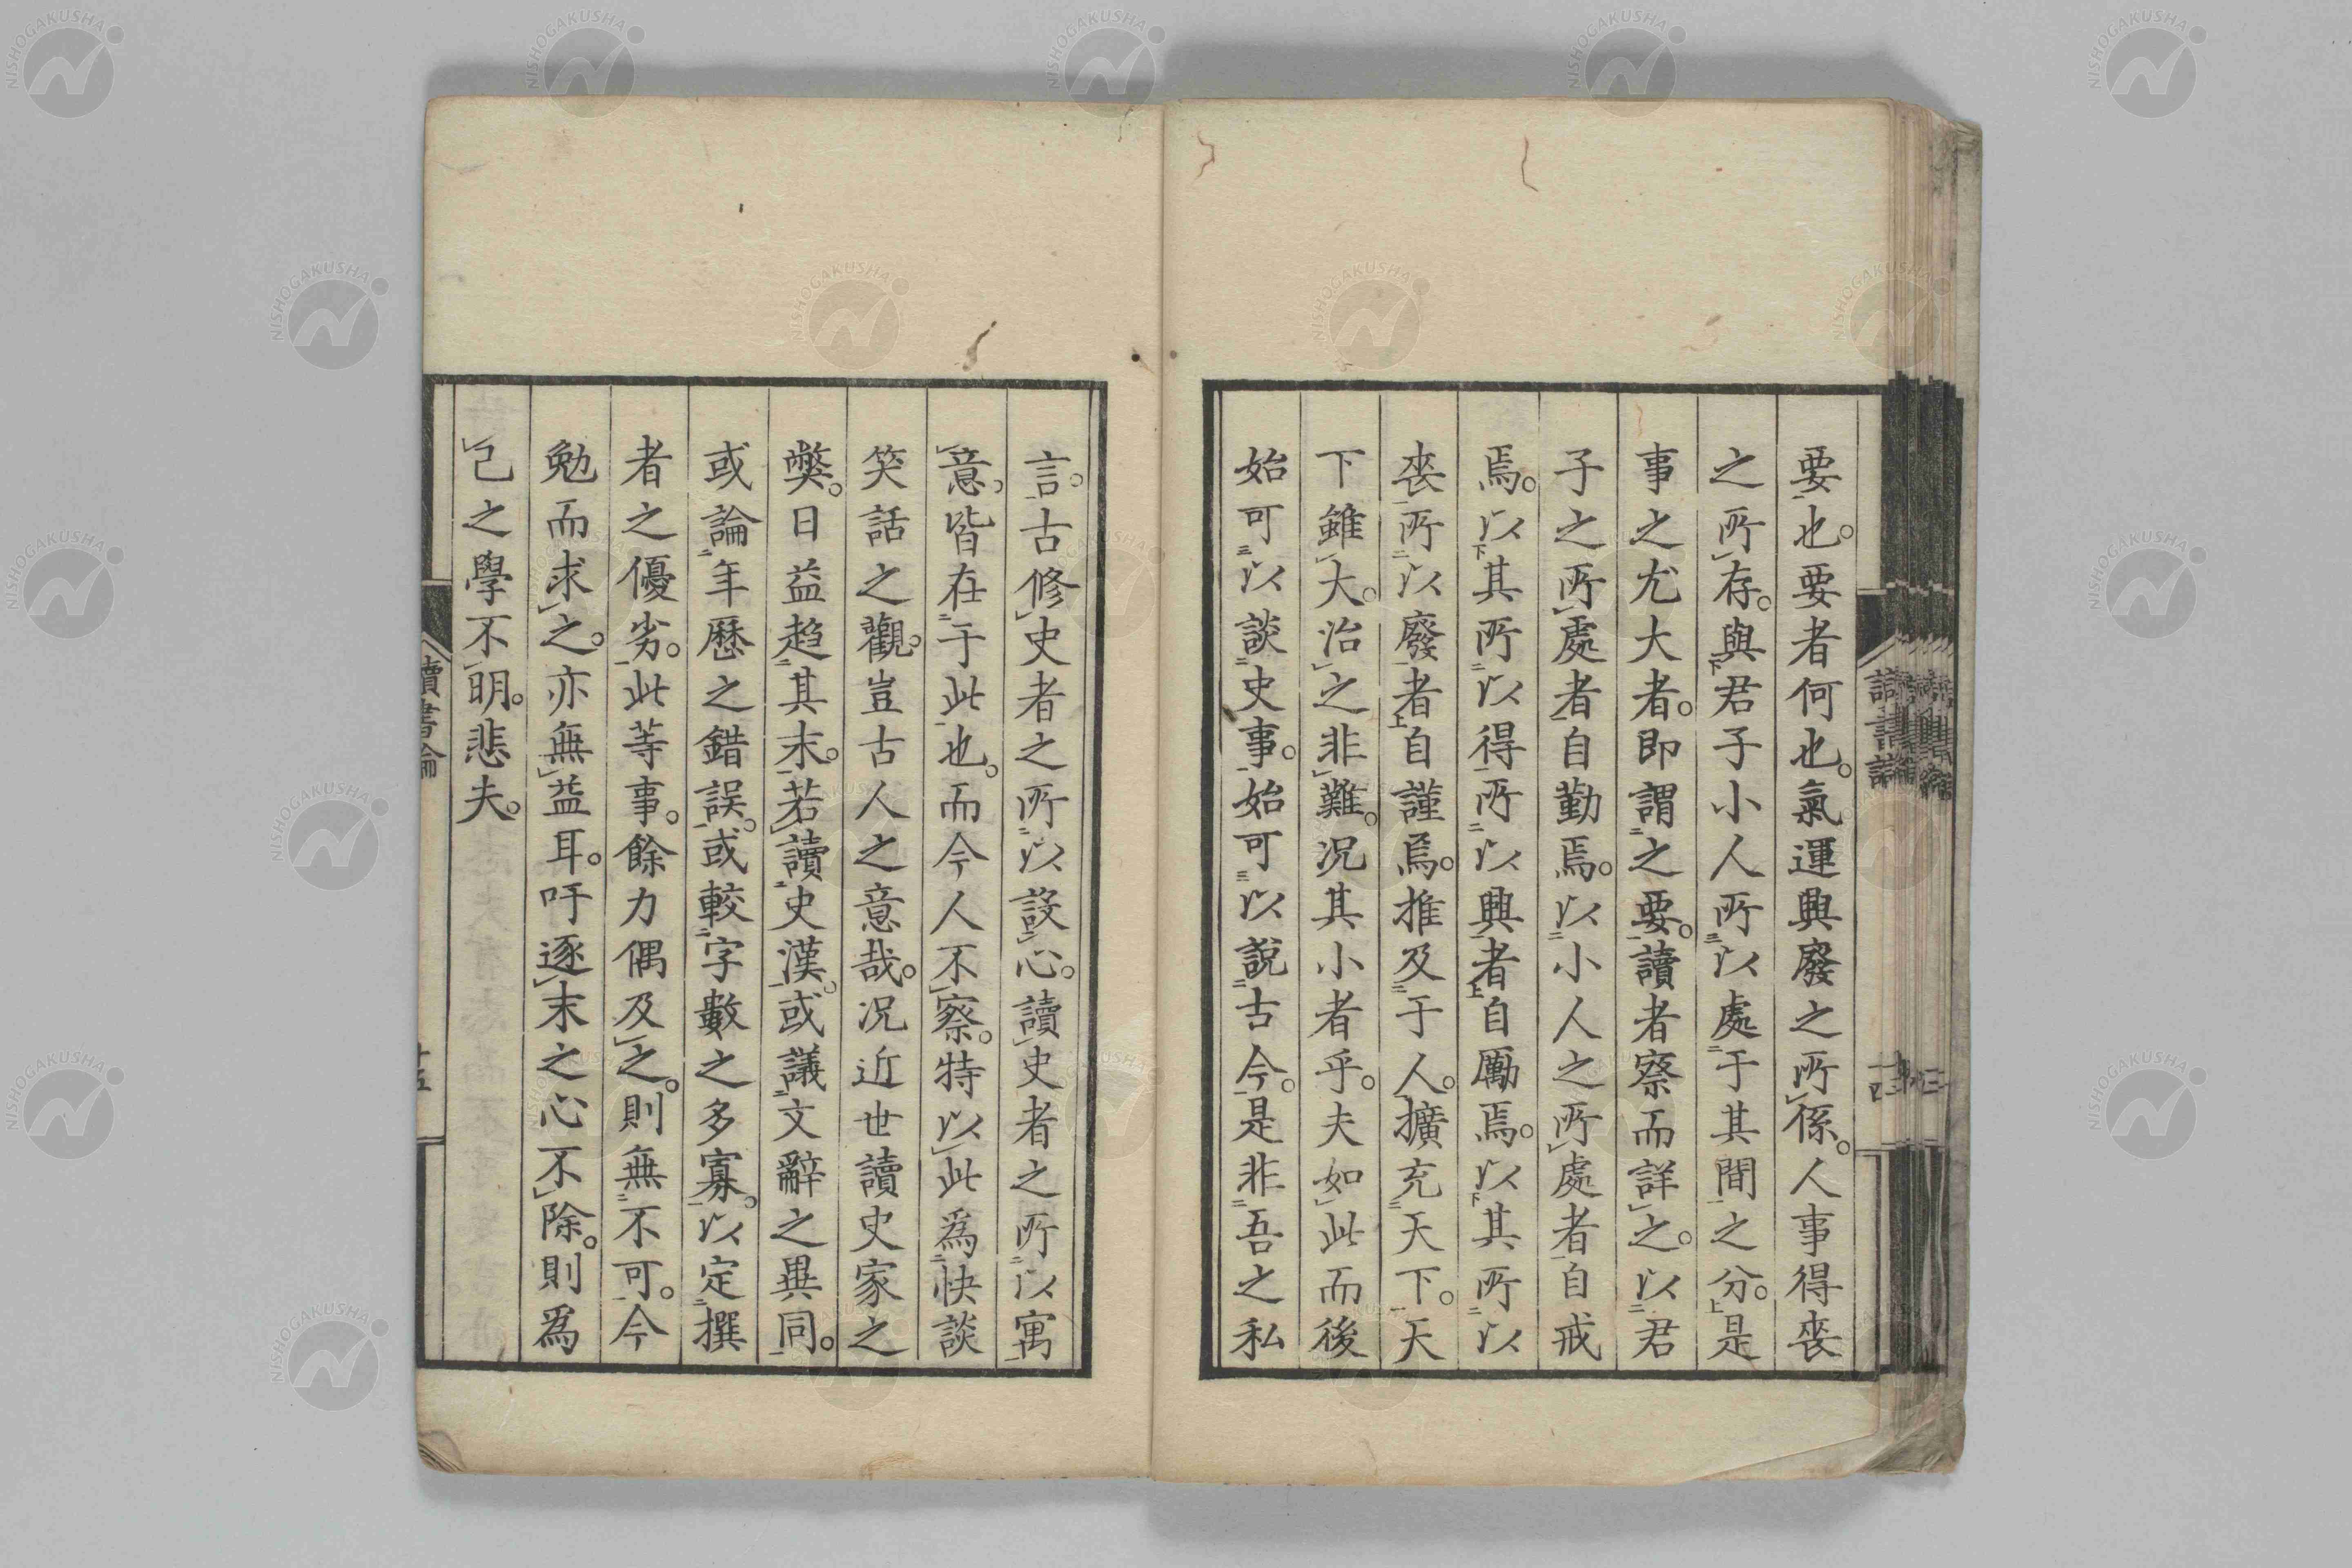 要也。要者何也。氣運興廢之所係。人事得喪
之所存。與君子小人所以處于其間之分。是
事之尤大者。即謂之要。讀者察而詳之。以君
子之所處者自勤焉。以小人之所處者自戒
焉。以其所以得所以興者自勵焉。以其所以
喪所以廢者自謹焉。推及于人。擴充天下。天
下雖大。治之非難。況其小者乎。夫如此而後
始可以談史事。始可以說古今。是非吾之私
言。古修史者之所以設心。讀史者之所以寓
意。皆在于此也。而今人不察。特以此為快談
笑話之觀。豈古人之意哉。況近世讀史家之
弊。日益趨其末。若讀史漢。或議文辭之異同。
或論年歷之錯誤。或較字數之多寡。以定撰
者之優劣。此等事。餘力偶及之。則無不可。今
勉而求之。亦無益耳。吁逐末之心不除。則為
己之學不明。悲夫。
讀書論
十五
NISHOGAKUSHA